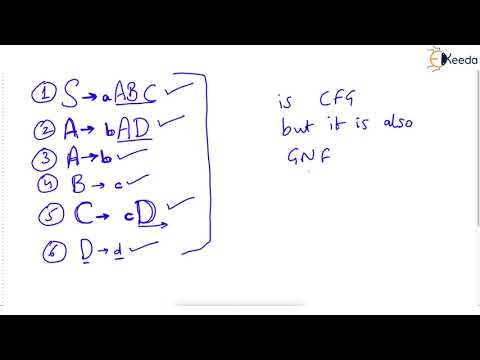 Ekeeda
① S → aABC ✓
② A → bAD ✓
③ A → b ✓
④ B → c ✓
⑤ C → cD ✓
⑥ D → d ✓
is CFG
but it is also
GNF